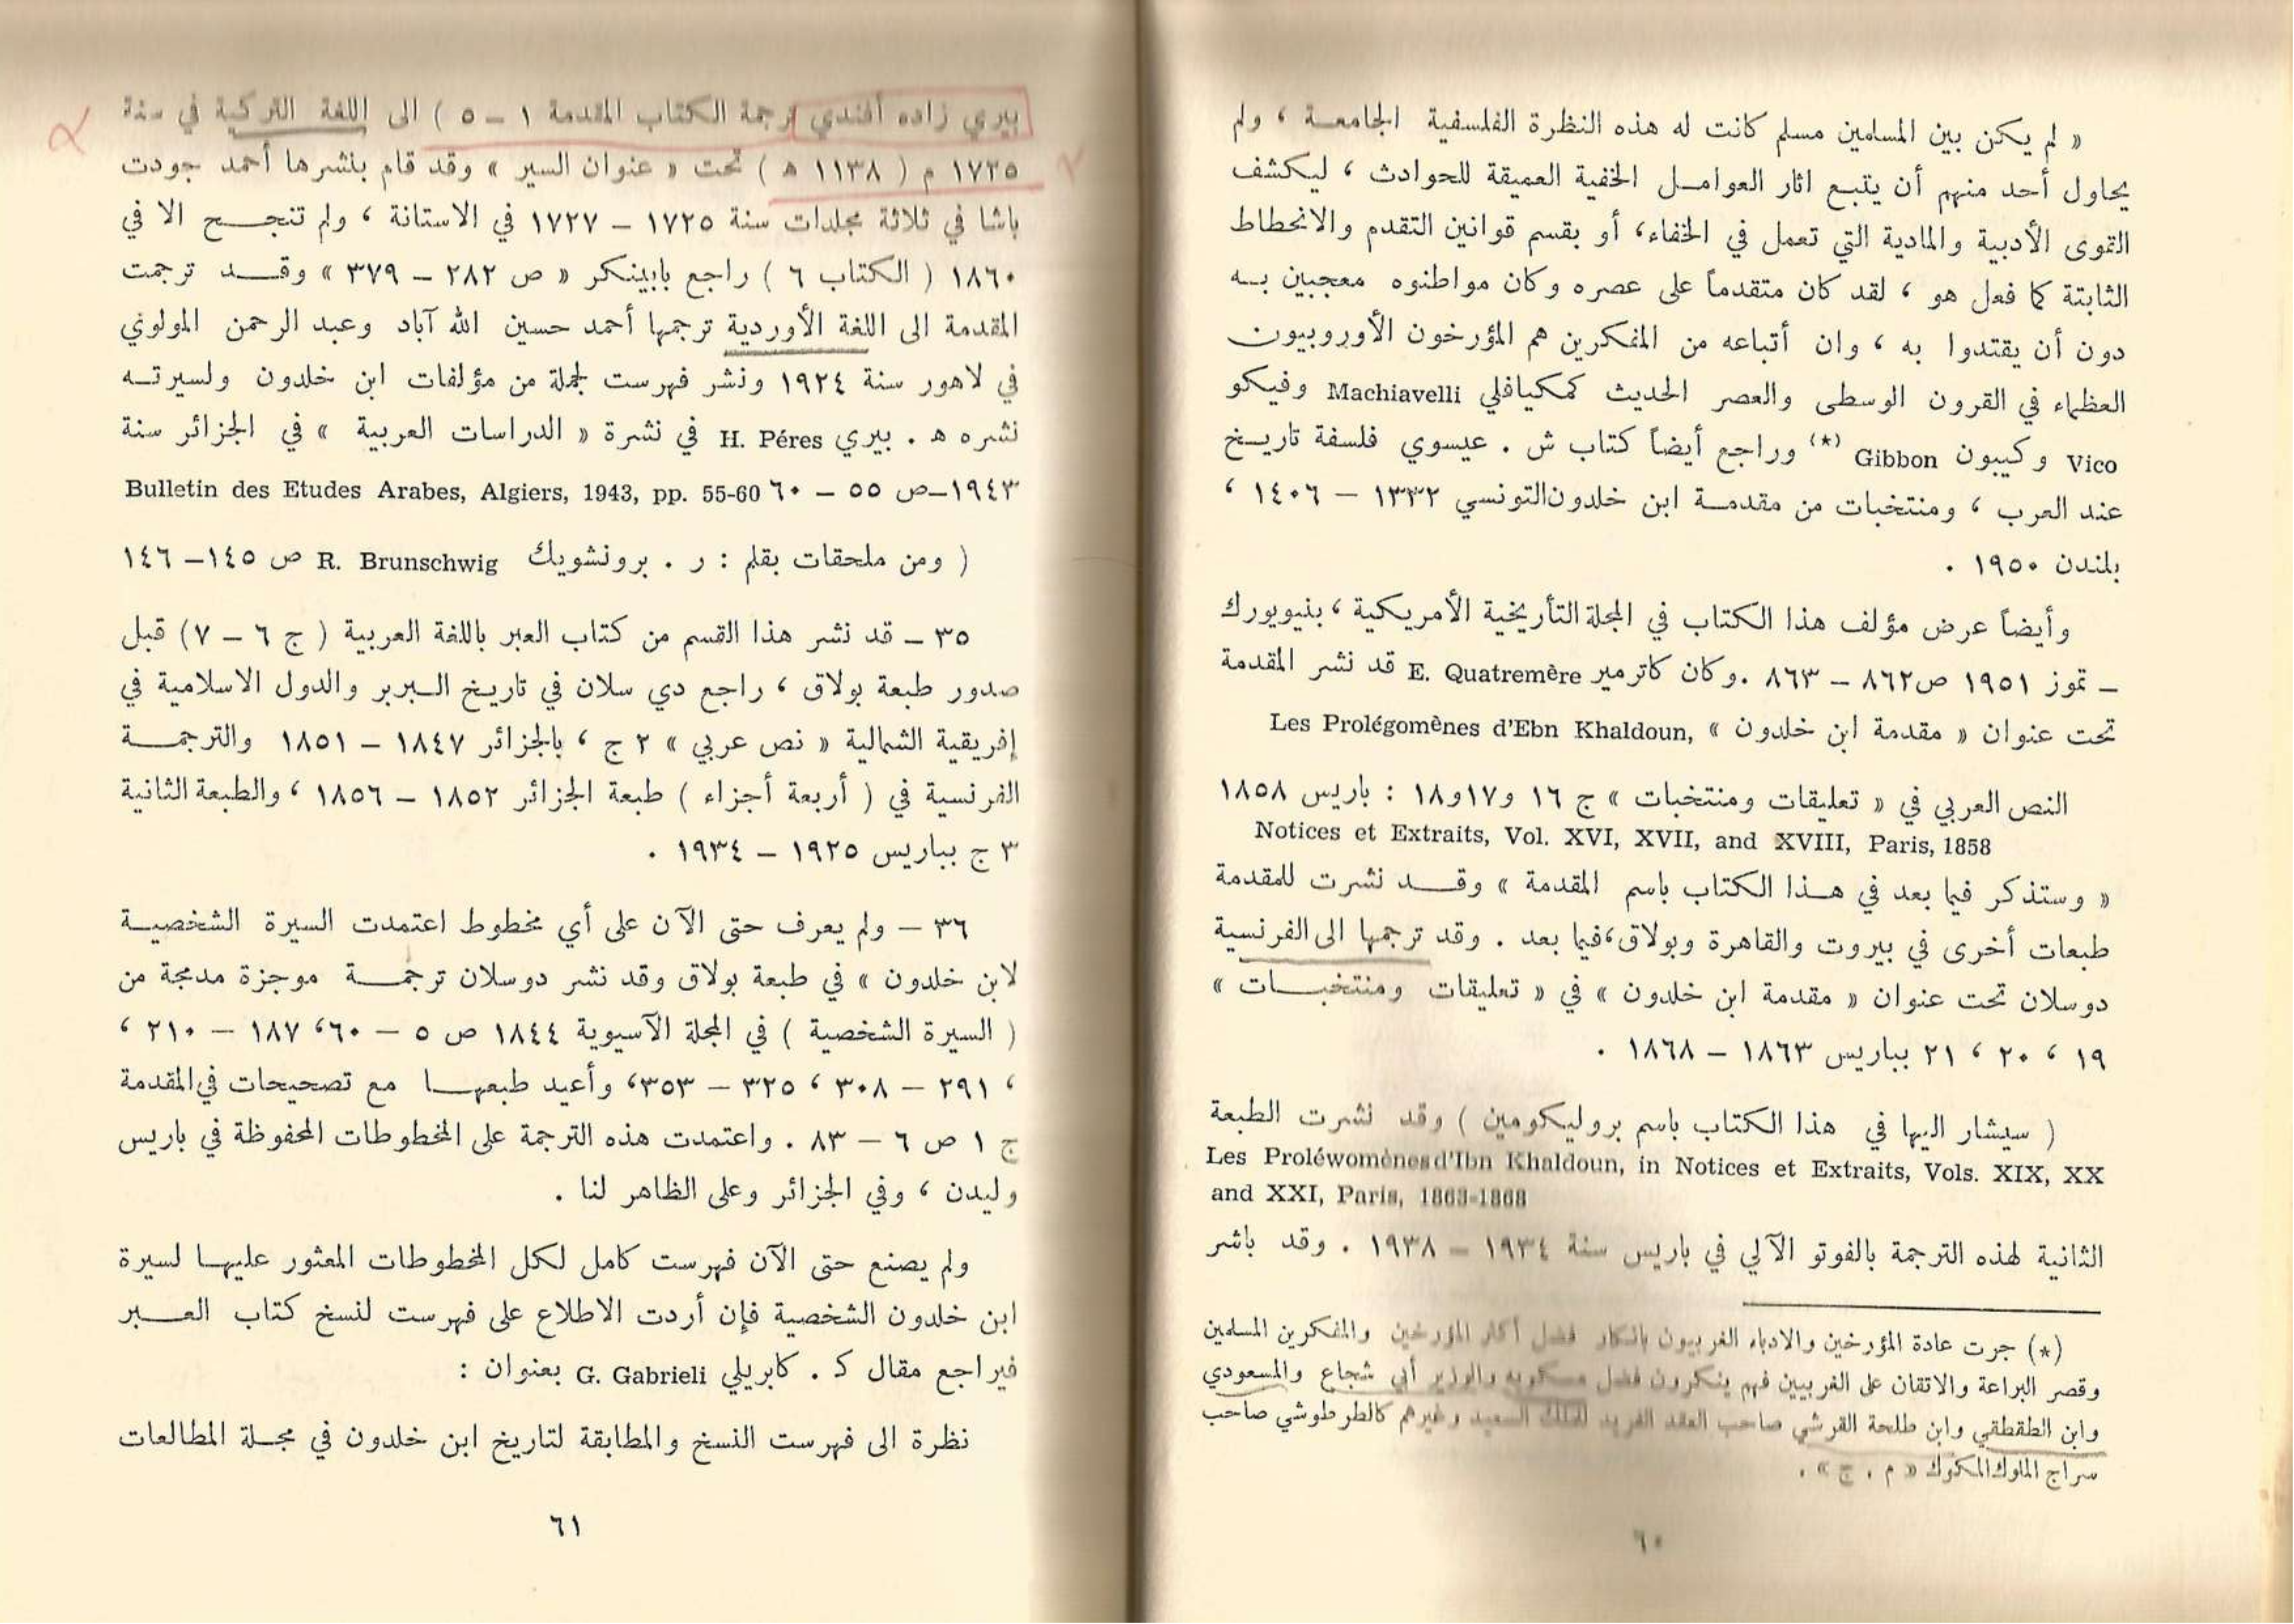 « لم يكن بين المسلمين مسلم كانت له هذه النظرة الفلسفية الجامعة ، ولم
يحاول أحد منهم أن يتبع اثار العوامل الخفية العميقة للحوادث ، ليكشف
القوى الأدبية والمادية التي تعمل في الخفاء، أو بقسم قوانين التقدم والانحطاط
الثابتة كما فعل هو ، لقد كان متقدماً على عصره وكان مواطنوه معجبين به
دون أن يقتدوا به ، وان أتباعه من المفكرين هم المؤرخون الأوروبيون
العظماء في القرون الوسطى والعصر الحديث كمكيافلي Machiavelli وفيكو
Vico وكيبون Gibbon (*) وراجع أيضاً كتاب ش . عيسوي فلسفة تاريخ
عند العرب ، ومنتخبات من مقدمة ابن خلدون التونسي ١٣٣٢ – ١٤٠٦ ،
بلندن ١٩٥٠ .
وأيضاً عرض مؤلف هذا الكتاب في المجلة التأريخية الأمريكية ، بنيويورك
– تموز ١٩٥١ ص٨٦٢ – ٨٦٣ .وكان كاترمير E. Quatremère قد نشر المقدمة
تحت عنوان « مقدمة ابن خلدون » Les Prolégomènes d'Ebn Khaldoun,
النص العربي في « تعليقات ومنتخبات » ج ١٦ و١٧و١٨ : باريس ١٨٥٨
Notices et Extraits, Vol. XVI, XVII, and XVIII, Paris, 1858
« وستذكر فيما بعد في هذا الكتاب باسم المقدمة » وقد نشرت للمقدمة
طبعات أخرى في بيروت والقاهرة وبولاق،فيما بعد . وقد ترجمها الى الفرنسية
دوسلان تحت عنوان « مقدمة ابن خلدون » في « تعليقات ومنتخبات »
١٩ ، ٢٠ ، ٢١ بباريس ١٨٦٣ – ١٨٦٨ .
( سيشار اليها في هذا الكتاب باسم بروليكومين ) وقد نشرت الطبعة
Les Proléwomènesd'Ibn Khaldoun, in Notices et Extraits, Vols. XIX, XX
and XXI, Paris, 1863-1868
الثانية لهذه الترجمة بالفوتو الآلي في باريس سنة ١٩٣٤ – ١٩٣٨ . وقد باشر
(*) جرت عادة المؤرخين والادباء الغربيون بانكار فضل أكثر المؤرخين والمفكرين المسلمين
وقصر البراعة والاتقان على الغربيين فهم ينكرون فضل مسكويه والوزير أبي شجاع والمسعودي
وابن الطقطقي وابن طلحة القرشي صاحب العقد الفريد للملك السعيد وغيرهم كالطرطوشي صاحب
سراج الملوك « م . ج » .
٦٠
بيري زاده أفندي ترجمة الكتاب المقدمة ١ – ٥ ) الى اللغة التركية في سنة
١٧٢٥ م ( ١١٣٨ ه ) تحت « عنوان السير » وقد قام بنشرها أحمد جودت
باشا في ثلاثة مجلدات سنة ١٧٢٥ – ١٧٢٧ في الاستانة ، ولم تنجح الا في
١٨٦٠ ( الكتاب ٦ ) راجع بابينكر « ص ٢٨٢ – ٣٧٩ » وقد ترجمت
المقدمة الى اللغة الأوردية ترجمها أحمد حسين الله آباد وعبد الرحمن المولوني
في لاهور سنة ١٩٢٤ ونشر فهرست لجملة من مؤلفات ابن خلدون ولسيرته
نشره ه . بيري H. Péres في نشرة « الدراسات العربية » في الجزائر سنة
١٩٤٣–ص ٥٥ – ٦٠ Bulletin des Etudes Arabes, Algiers, 1943, pp. 55-60
( ومن ملحقات بقلم : ر . برونشويك R. Brunschwig ص ١٤٥–١٤٦
٣٥ – قد نشر هذا القسم من كتاب العبر باللغة العربية ( ج ٦ – ٧) قبل
صدور طبعة بولاق ، راجع دي سلان في تاريخ البربر والدول الاسلامية في
إفريقية الشمالية « نص عربي » ٢ ج ، بالجزائر ١٨٤٧ – ١٨٥١ والترجمة
الفرنسية في ( أربعة أجزاء ) طبعة الجزائر ١٨٥٢ – ١٨٥٦ ، والطبعة الثانية
٣ ج بباريس ١٩٢٥ – ١٩٣٤ .
٣٦ – ولم يعرف حتى الآن على أي مخطوط اعتمدت السيرة الشخصية
لابن خلدون » في طبعة بولاق وقد نشر دوسلان ترجمة موجزة مدمجة من
( السيرة الشخصية ) في المجلة الآسيوية ١٨٤٤ ص ٥ – ٦٠، ١٨٧ – ٢١٠ ،
، ٢٩١ – ٣٠٨ ، ٣٢٥ – ٣٥٣، وأعيد طبعها مع تصحيحات في المقدمة
ج ١ ص ٦ – ٨٣ . واعتمدت هذه الترجمة على المخطوطات المحفوظة في باريس
وليدن ، وفي الجزائر وعلى الظاهر لنا .
ولم يصنع حتى الآن فهرست كامل لكل المخطوطات المعثور عليها لسيرة
ابن خلدون الشخصية فإن أردت الاطلاع على فهرست لنسخ كتاب العبر
فيراجع مقال ك . كابريلي G. Gabrieli بعنوان :
نظرة الى فهرست النسخ والمطابقة لتاريخ ابن خلدون في مجلة المطالعات
٦١